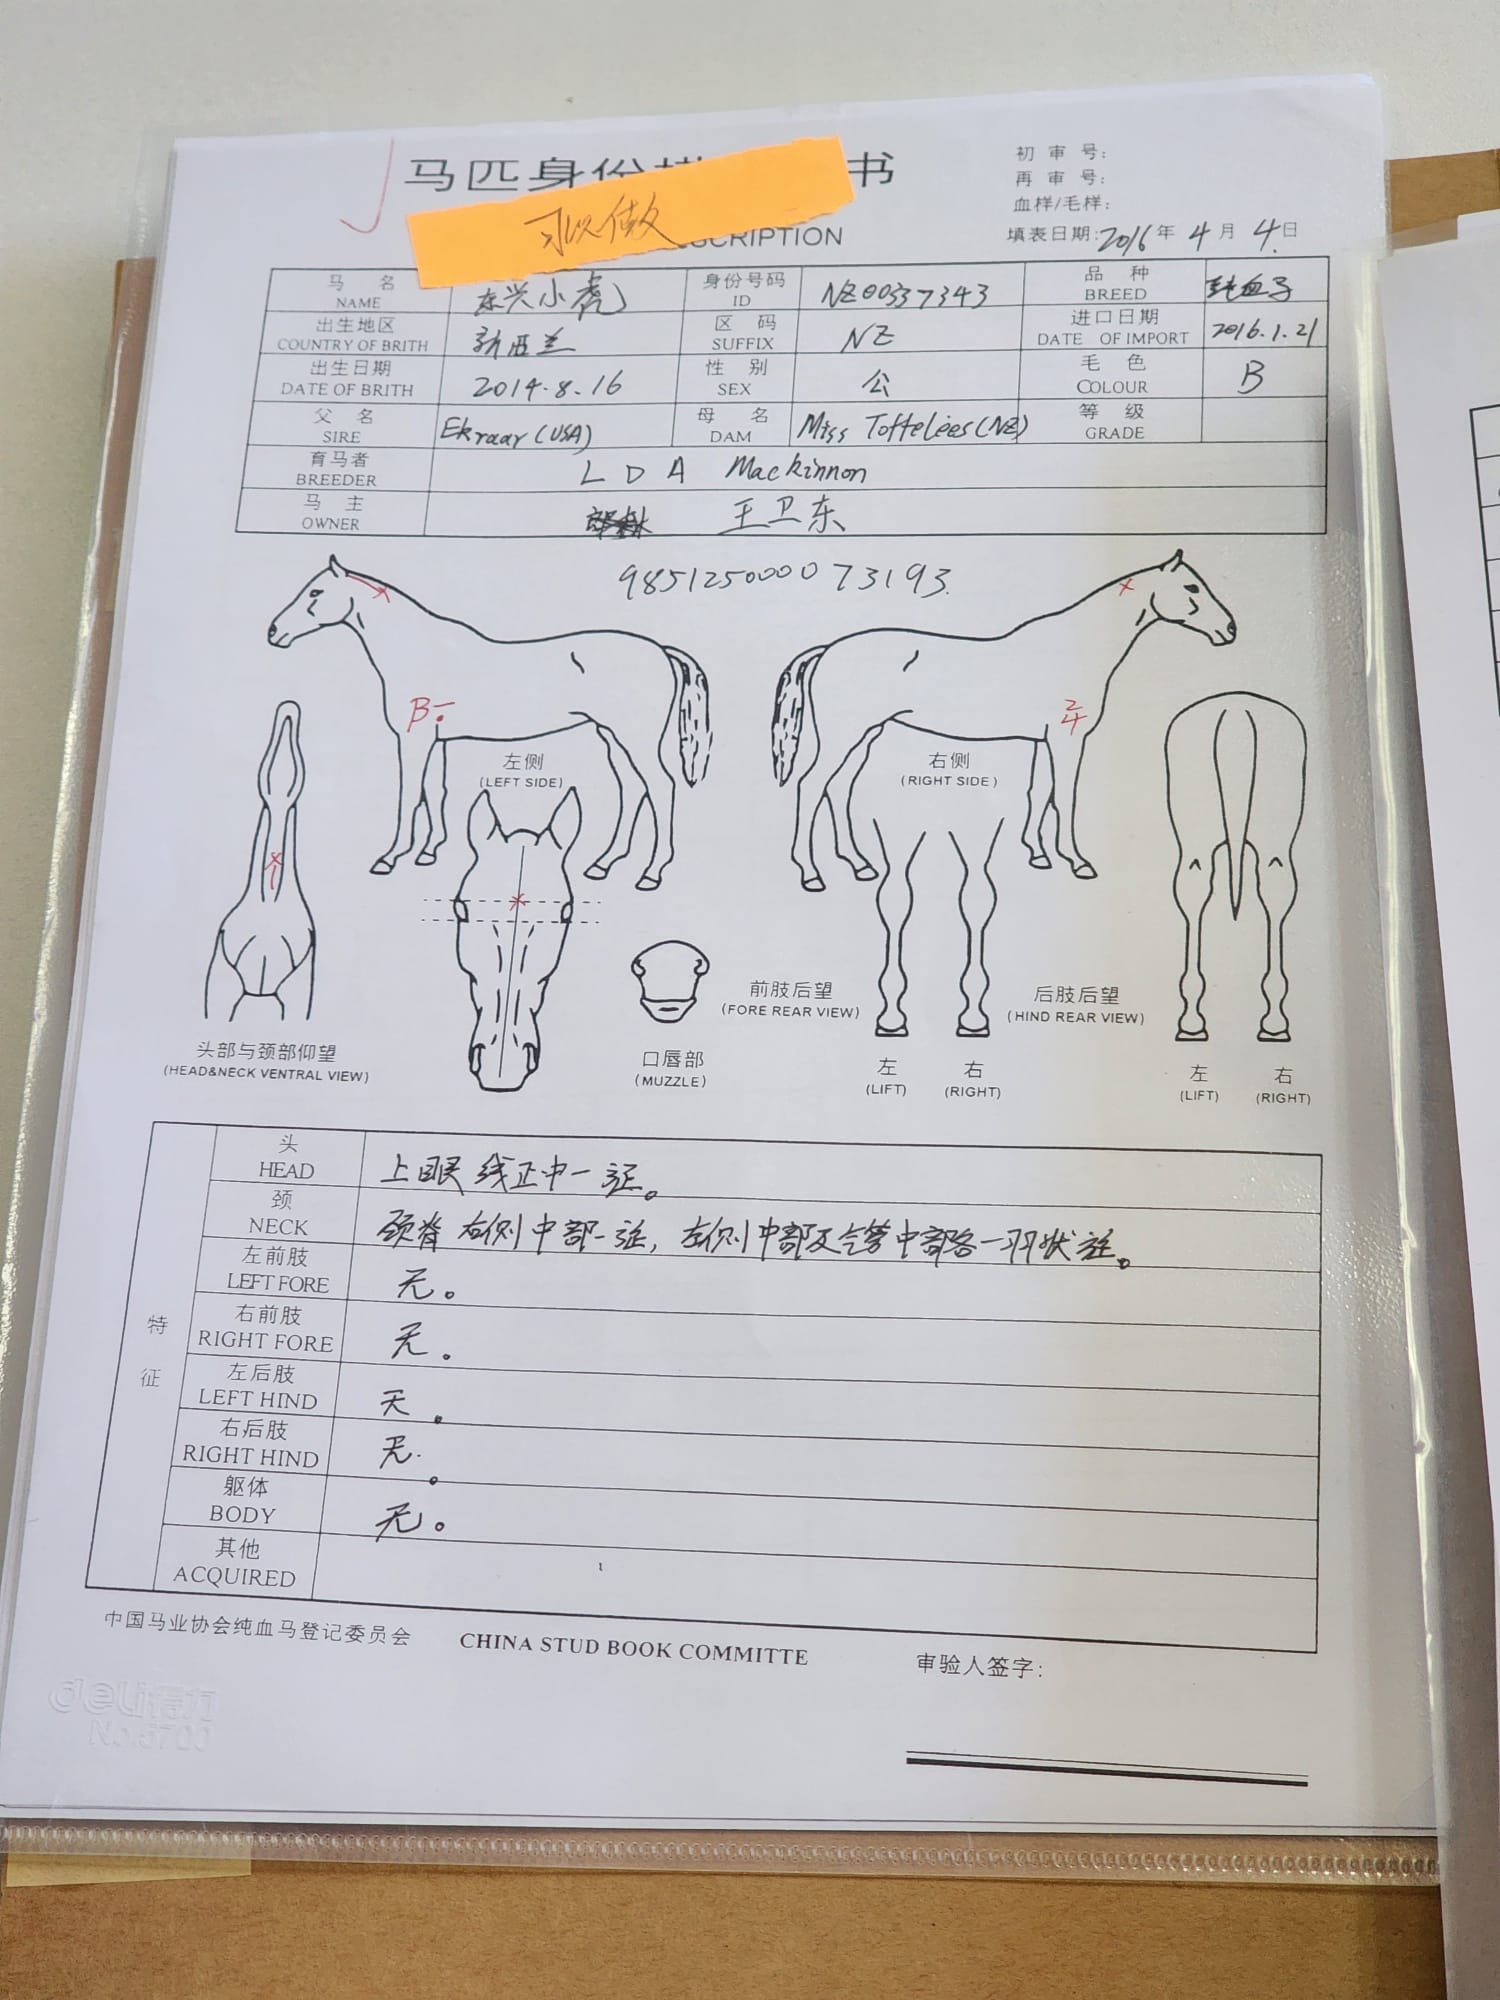 马匹身份 书
可以做
SCRIPTION
初审号:
再审号:
血样/毛样:
填表日期:2016年4月4日
马名 NAME 东兴小虎 身份号码 ID NZ00337343 品种 BREED 纯血马
出生地区 COUNTRY OF BRITH 新西兰 区码 SUFFIX NZ 进口日期 DATE OF IMPORT 2016.1.21
出生日期 DATE OF BRITH 2014.8.16 性别 SEX 公 毛色 COLOUR B
父名 SIRE Ekraar(USA) 母名 DAM Miss Toffelees(NZ) 等级 GRADE
育马者 BREEDER L D A Mackinnon
马主 OWNER 王卫东
985125000073193
B-
2/4
左侧
(LEFT SIDE)
右侧
(RIGHT SIDE)
头部与颈部仰望
(HEAD&NECK VENTRAL VIEW)
口唇部
(MUZZLE)
前肢后望
(FORE REAR VIEW)
左
(LIFT)
右
(RIGHT)
后肢后望
(HIND REAR VIEW)
左
(LIFT)
右
(RIGHT)
特征
头 HEAD 上眼线正中一旋。
颈 NECK 颈脊右侧中部一旋，左侧中部及气管中部各一羽状旋。
左前肢 LEFT FORE 无。
右前肢 RIGHT FORE 无。
左后肢 LEFT HIND 无。
右后肢 RIGHT HIND 无。
躯体 BODY 无。
其他 ACQUIRED
中国马业协会纯血马登记委员会 CHINA STUD BOOK COMMITTE
审验人签字:
deli得力
No.5700